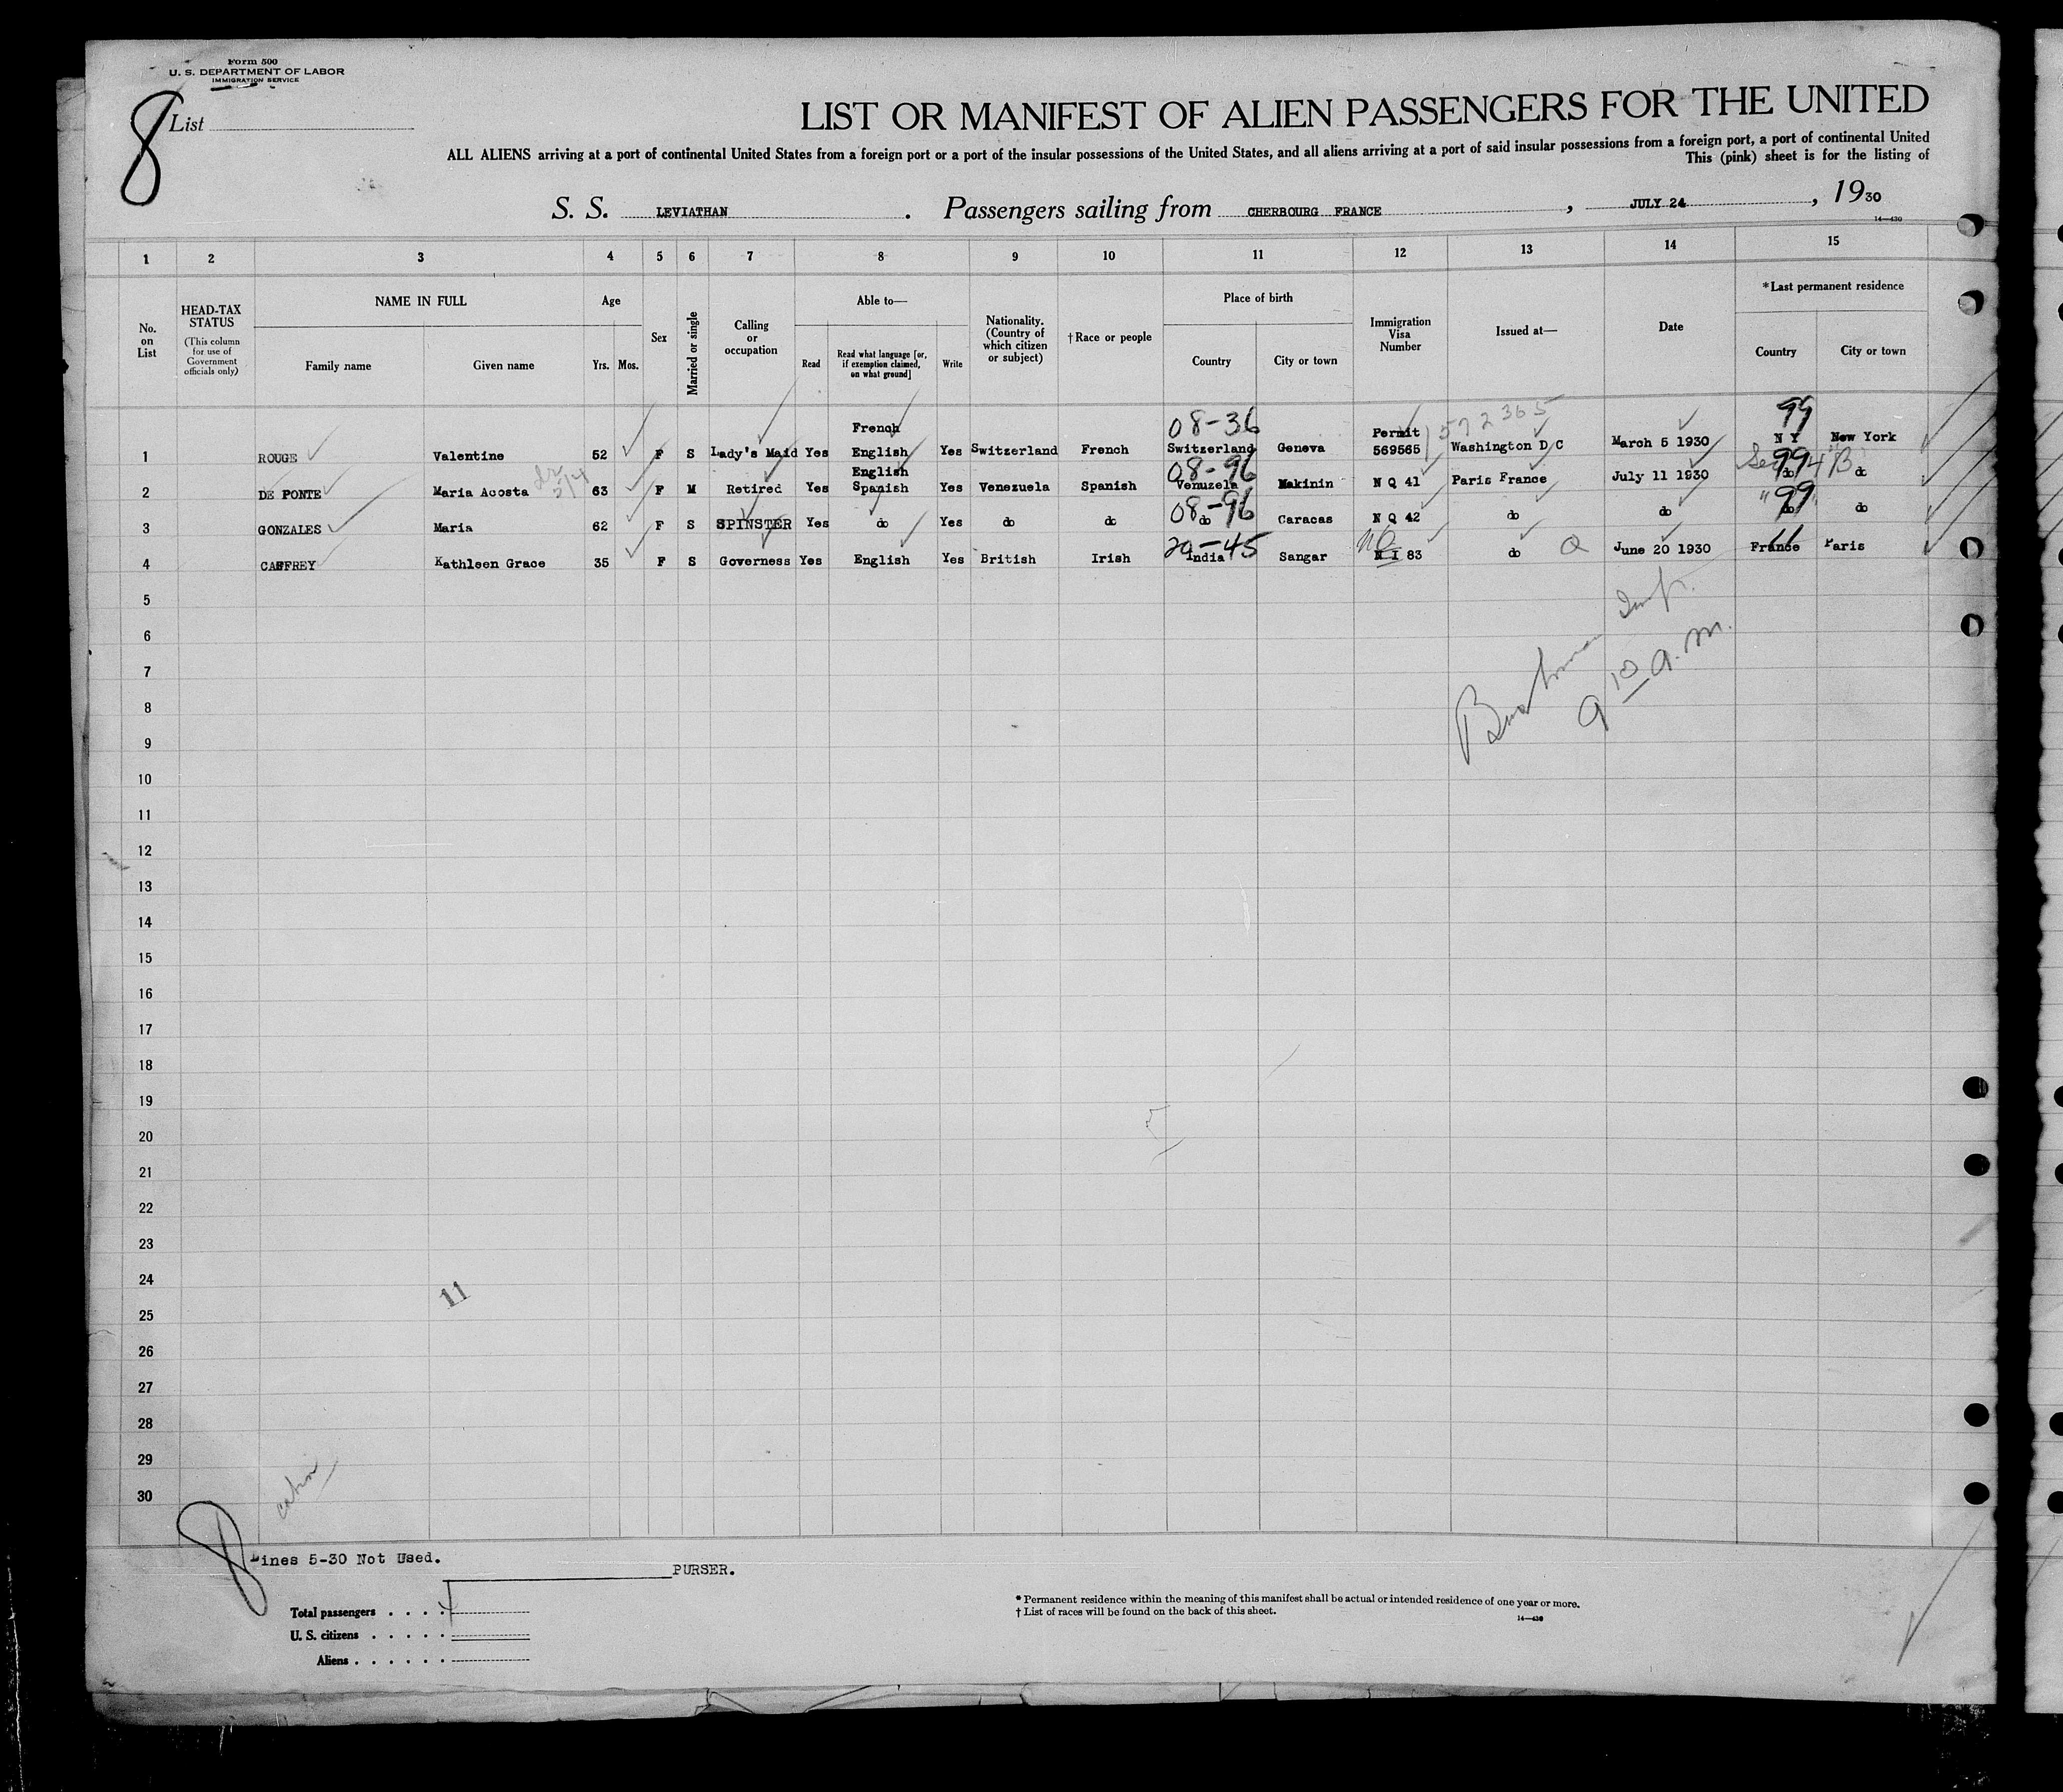 Form 500
U. S. DEPARTMENT OF LABOR
IMMIGRATION SERVICE
8
List
LIST OR MANIFEST OF ALIEN PASSENGERS FOR THE UNITED
ALL ALIENS arriving at a port of continental United States from a foreign port or a port of the insular possessions of the United States, and all aliens arriving at a port of said insular possessions from a foreign port, a port of continental United
This (pink) sheet is for the listing of
S. S. LEVIATHAN . Passengers sailing from CHERBOURG FRANCE , JULY 24 , 1930
14—430
1 2 3 4 5 6 7 8 9 10 11 12 13 14 15
No. on List
HEAD-TAX STATUS
(This column for use of Government officials only)
NAME IN FULL
Family name Given name
Age
Yrs. Mos.
Sex
Married or single
Calling or occupation
Able to—
Read
Read what language [or, if exemption claimed, on what ground]
Write
Nationality. (Country of which citizen or subject)
†Race or people
Place of birth
Country City or town
Immigration Visa Number
Issued at—
Date
*Last permanent residence
Country City or town
08-36 572365 99
French Permit
1 ROUGE Valentine 52 F S Lady's Maid Yes English Yes Switzerland French Switzerland Geneva 569565 Washington D C March 5 1930 N Y New York
English 08-96 99 4 B
2 DE PONTE Maria Acosta 63 F M Retired Yes Spanish Yes Venezuela Spanish Venuzela Makinin N Q 41 Paris France July 11 1930 do do
08-96 " 99
3 GONZALES Maria 62 F S SPINSTER Yes do Yes do do do Caracas N Q 42 do do do do
20-45 NQ Q 11
4 CAFFREY Kathleen Grace 35 F S Governess Yes English Yes British Irish India Sangar N I 83 do June 20 1930 France Paris
5
Insp.
6
7
9 10 a.m.
8
9
10
11
12
13
14
15
16
17
18
19
20
21
22
23
24
11
25
26
27
28
29
30
cabin
8
Lines 5-30 Not Used.
PURSER.
Total passengers . . . . 4
U. S. citizens . . . . .
Aliens . . . . . .
* Permanent residence within the meaning of this manifest shall be actual or intended residence of one year or more.
† List of races will be found on the back of this sheet.
14—430